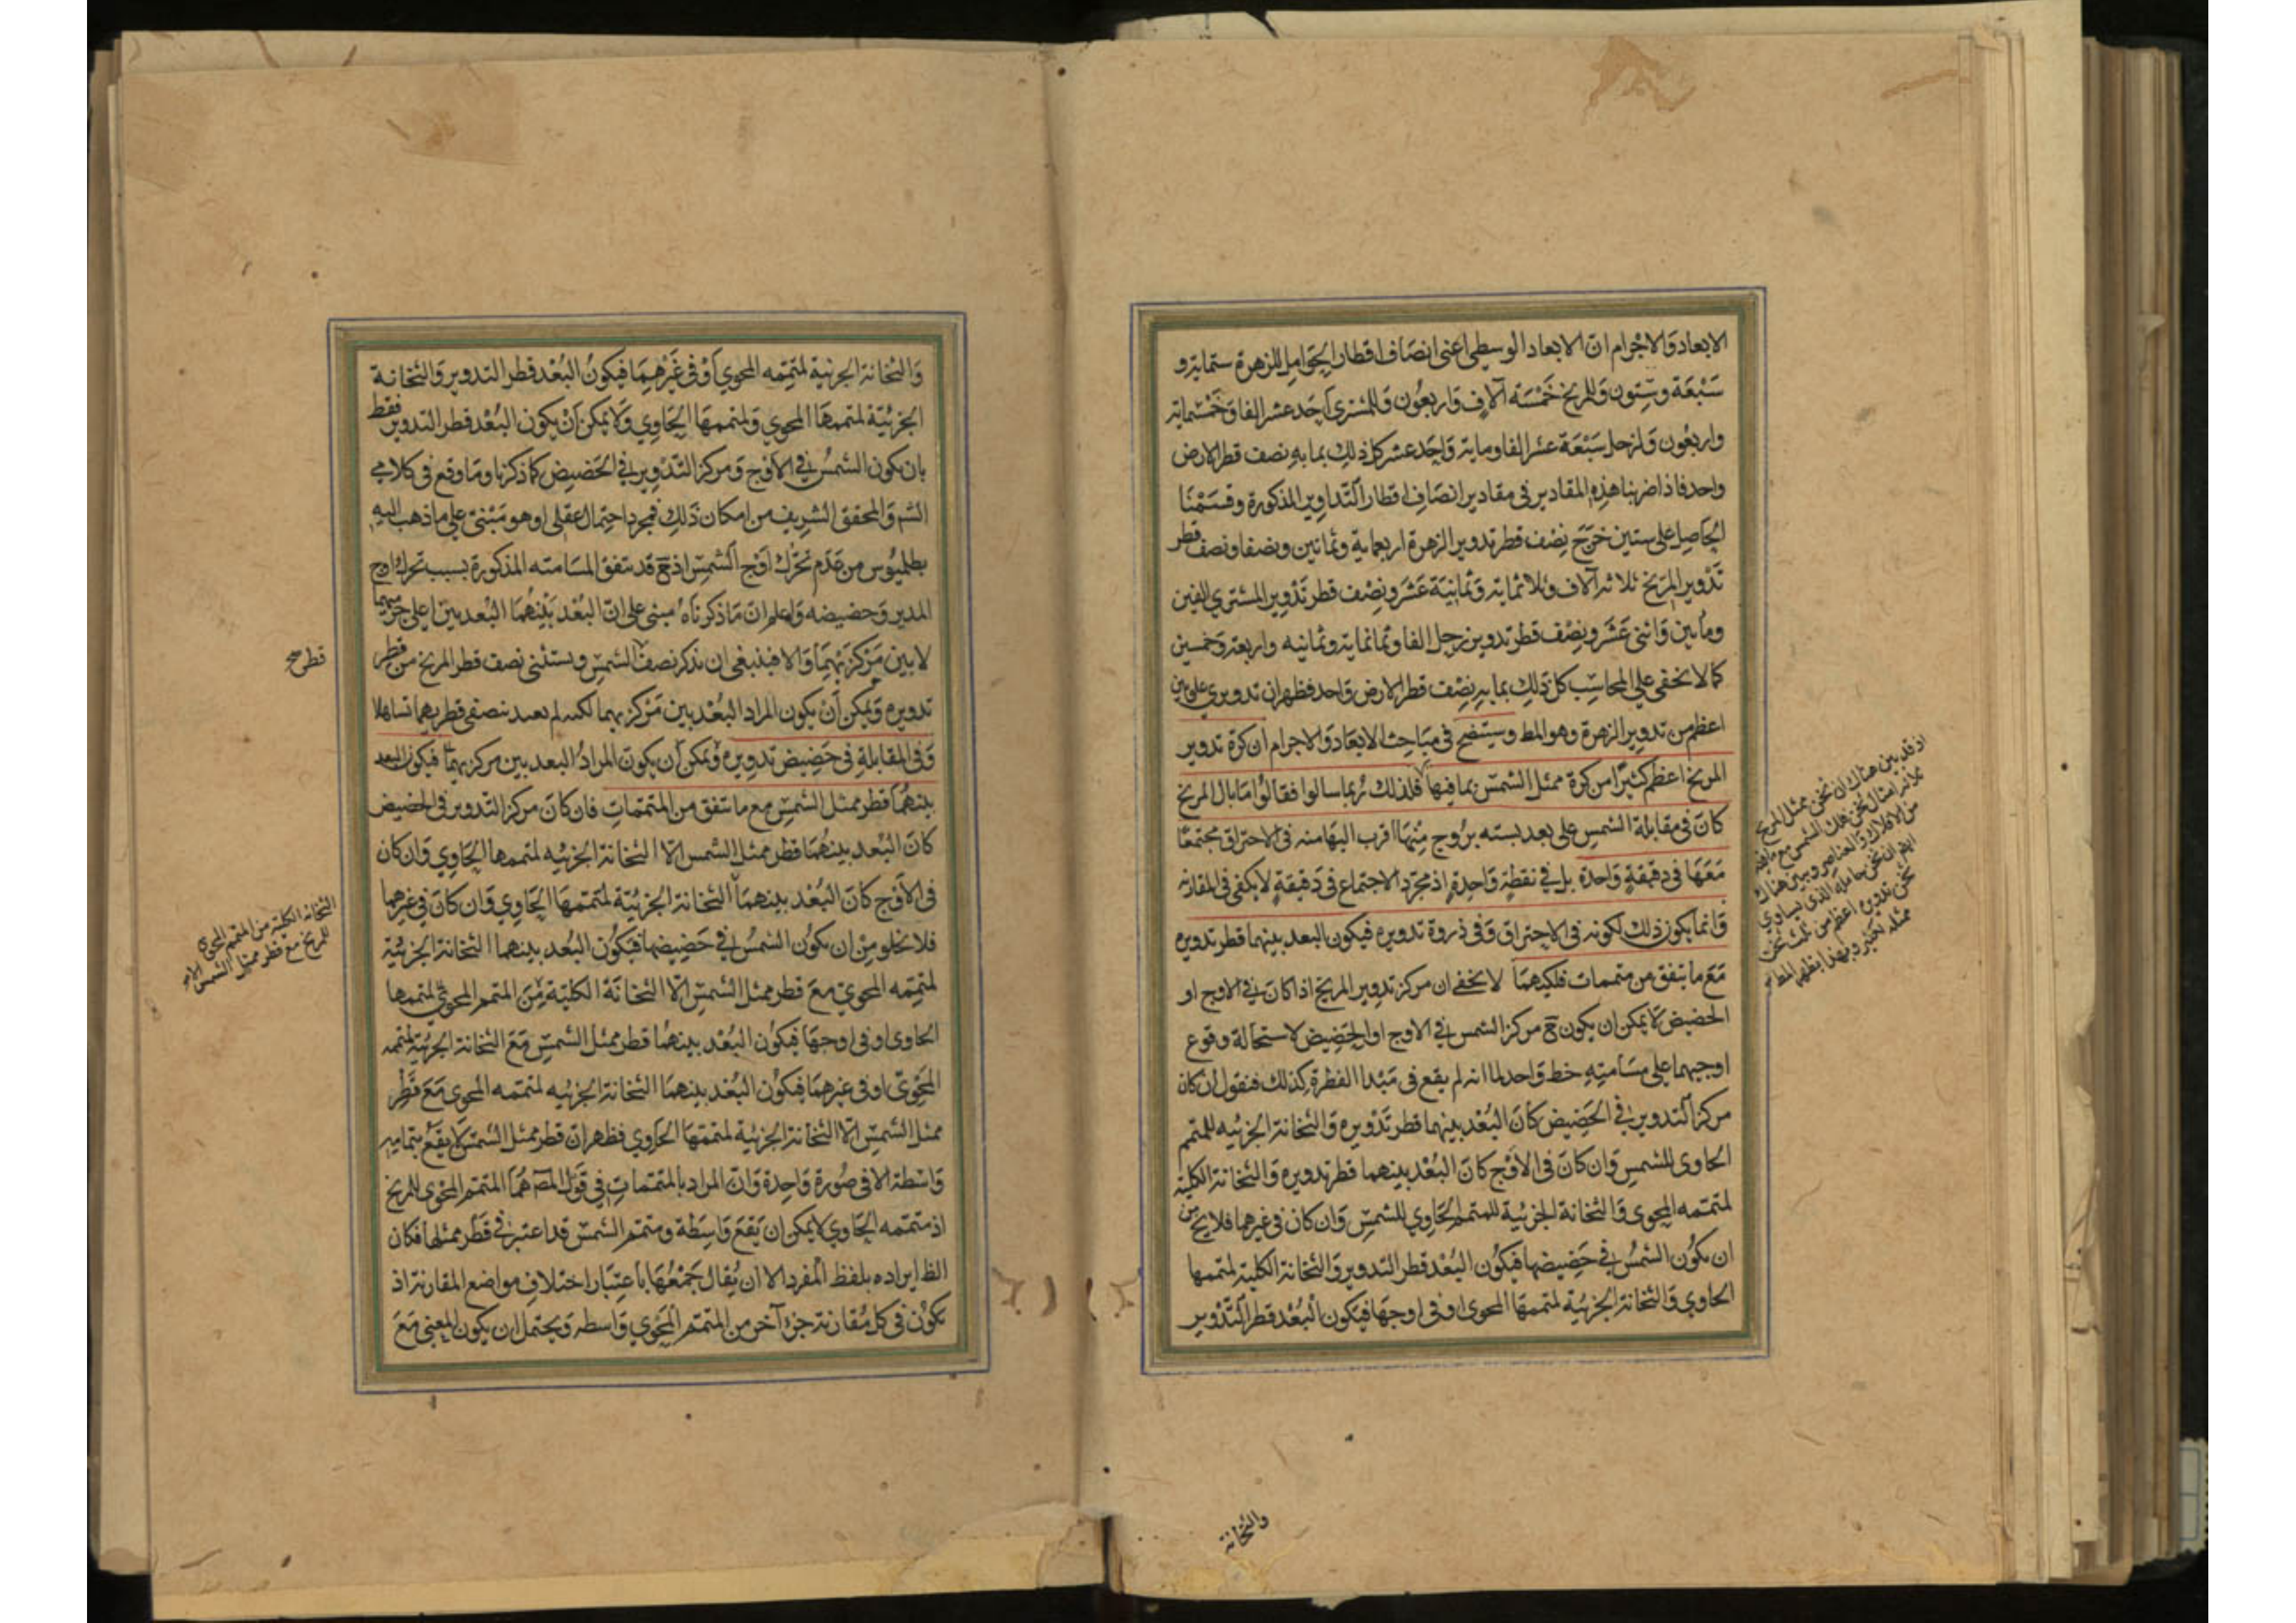 الابعاد والاجرام ان الابعاد الوسطى اعنى انصاف اقطار الحوامل للزهرة ستماية و
سبعة وستون وللمريخ خمسة آلاف واربعون وللمشترى احد عشر الفا وخمسماية
واربعون ولزحل سبعة عشر الفا وماية واحد عشر كل ذلك بما به نصف قطر الارض
واحد فاذا ضربنا هذه المقادير فى مقادير انصاف اقطار التداوير المذكورة وقسمنا
الحاصل على ستين خرج نصف قطر تدوير الزهرة اربعماية وثمانين ونصفا ونصف قطر
تدوير المريخ ثلاثة آلاف وثلاثماية وثمانية عشر ونصف قطر تدوير المشتري الفين
ومأتين واثنى عشر ونصف قطر تدوير زحل الفا وثمانماية وثمانيه واربعة وخمسين
كما لا يخفى على المحاسب كل ذلك بما به نصف قطر الارض واحد فظهر ان تدويري علويين
اعظم من تدوير الزهرة وهو المط وسيتضح فى مباحث الابعاد والاجرام ان كرة تدوير
المريخ اعظم كثيرا من كرة ممثل الشمس بما فيها فلذلك ربما سالوا فقالوا ما بال المريخ
كان فى مقابلة الشمس على بعد بسته بروج منها اقرب اليها منه فى الاحتراق مجتمعا
معها فى دقيقة واحدة بل في نقطة واحدة اذ مجرد الاجتماع فى دقيقة لا يكفى فى المقارنه
وانما يكون ذلك لكونه فى الاحتراق وفى ذروة تدويره فيكون البعد بينهما قطر تدويره
مع ما يتفق من متممات فلكيهما لا يخفى ان مركز تدوير المريخ اذا كان في الاوج او
الحضيض لا يمكن ان يكون ح مركز الشمس في الاوج او الحضيض لاستحالة وقوع
اوجيهما على مسامتة خط واحد لما انه لم يقع فى مبدا الفطرة كذلك فنقول ان كان
مركز التدوير في الحضيض كان البعد بينهما قطر تدويره والثخانة الجزئيه للمتمم
الحاوى للشمس وان كان فى الاوج كان البعد بينهما قطر تدويره والثخانة الكلية
لمتممه المحوى والثخانة الجزئية للمتمم الحاوي للشمس وان كان فى غيرهما فلا يخ من
ان يكون الشمس في حضيضها فيكون البعد قطر التدوير والثخانة الكلية لمتممها
الحاوي والثخانة الجزئية لمتممها المحوى او فى اوجها فيكون البعد قطر التدوير
اذ قد بين هناك ان ثخن ممثل المريخ
ثلاثة امثال ثخن فلك الشمس مع ما فيه
من الافلاك والعناصر وبين هناك
ايضا ان ثخن حامله الذى يساوي
ثخن تدويره اعظم من ثلث ثخن
ممثله بكثير وبهذا يظهر المط
والثخانة
والثخانة الجزئية لمتممه المحوي او فى غيرهما فيكون البعد قطر التدوير والثخانة
الجزئية لمتممها المحوي ولمتممها الحاوي ولا يمكن ان يكون البعد قطر التدوير فقط
بان يكون الشمس في الاوج ومركز التدوير في الحضيض كما ذكرنا وما وقع فى كلامي
الشم والمحقق الشريف من امكان ذلك فمجرد احتمال عقلى او هو مبنى على ما ذهب اليه
بطلميوس من عدم تحرك اوج الشمس اذ ح قد يتفق المسامته المذكورة بسبب تحرك اوج
المدير وحضيضه واعلم ان ما ذكرناه مبنى على ان البعد بينهما البعد بين اعلى جرميهما
لا بين مركزيهما والا فينبغى ان نذكر نصف الشمس ويستثنى نصف قطر المريخ من قطر
تدويره ويمكن ان يكون المراد البعد بين مركزيهما لكنه لم يعتد بنصفى قطريهما تساهلا
وفى المقابلة فى حضيض تدويره ويمكن ان يكون المراد البعد بين مركزيهما فيكون البعد
بينهما قطر ممثل الشمس مع ما يتفق من المتممات فان كان مركز التدوير فى الحضيض
كان البعد بينهما قطر ممثل الشمس الا الثخانة الجزئيه لمتممها الحاوي وان كان
فى الاوج كان البعد بينهما الثخانة الجزئية لمتممها الحاوي وان كان فى غيرهما
فلا يخلو من ان يكون الشمس في حضيضها فيكون البعد بينهما الثخانة الجزئية
لمتممه المحوي مع قطر ممثل الشمس الا الثخانة الكلية من المتمم المحوي لمتممها
الحاوى او فى اوجها فيكون البعد بينهما قطر ممثل الشمس مع الثخانة الجزئية لمتممه
المحوي او فى غيرهما فيكون البعد بينهما الثخانة الجزئيه لمتممه المحوى مع قطر
ممثل الشمس الا الثخانة الجزئية لمتممها الحاوي فظهر ان قطر ممثل الشمس لا يقع بتمامه
واسطة الا فى صورة واحدة وان المراد بالمتممات في قول المصَ هما المتمم المحوى للمريخ
اذ متممه الحاوي لا يمكن ان يقع واسطة ومتمم الشمس قد اعتبر في قطر ممثلها فكان
الظ ايراده بلفظ المفرد الا ان يقال جمعها باعتبار اختلاف مواضع المقارنة اذ
يكون فى كل مقارنة جزء آخر من المتمم المحوي واسطه ويحتمل ان يكون المعنى مع
قطر صح
الثخانة الكلية من المتمم المحوي
للمريخ مع قطر ممثل الشمس الا